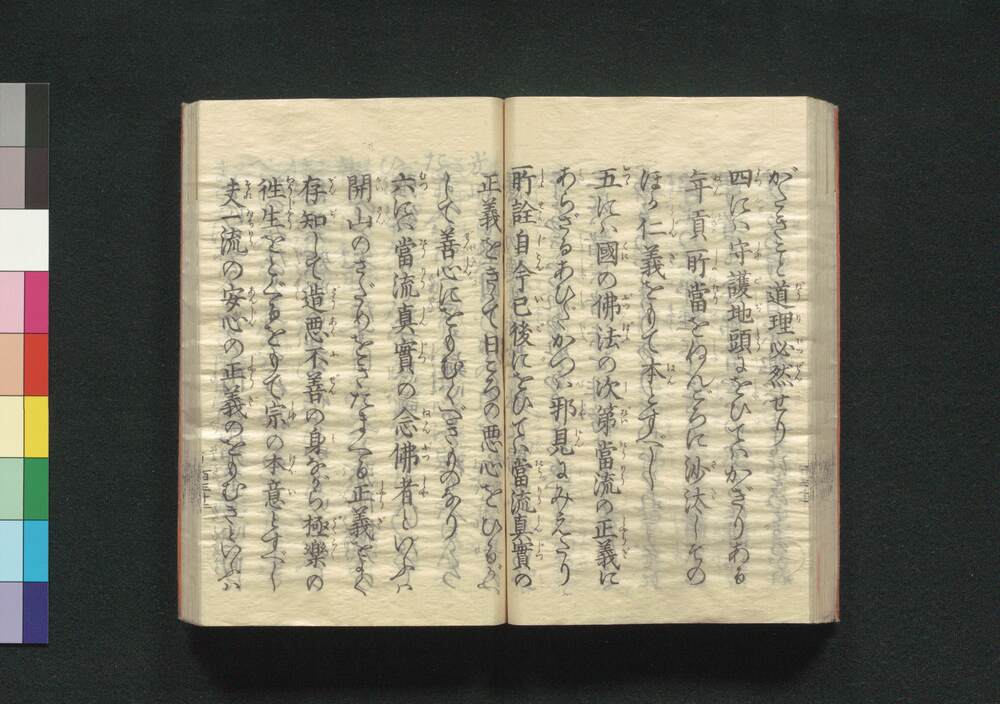 がたきこと道理必然せり
四には守護地頭にをひてはかぎりある
年貢所當をねんごろに沙汰しその
ほか仁義をもて本とすべし
五には國の佛法の次第當流の正義に
あらざるあひだかつは邪見にみえたり
所詮自今已後にをひては當流真實の
正義をきゝて日ごろの悪心をひるがへ
して善心にをもむくべきものなり
六には當流真實の念佛者といふは
開山のさだめをきたまへる正義をよく
存知して造悪不善の身ながら極樂の
徃生をとぐるをもて宗の本意とすべし
夫一流の安心の正義のをもむきといふは